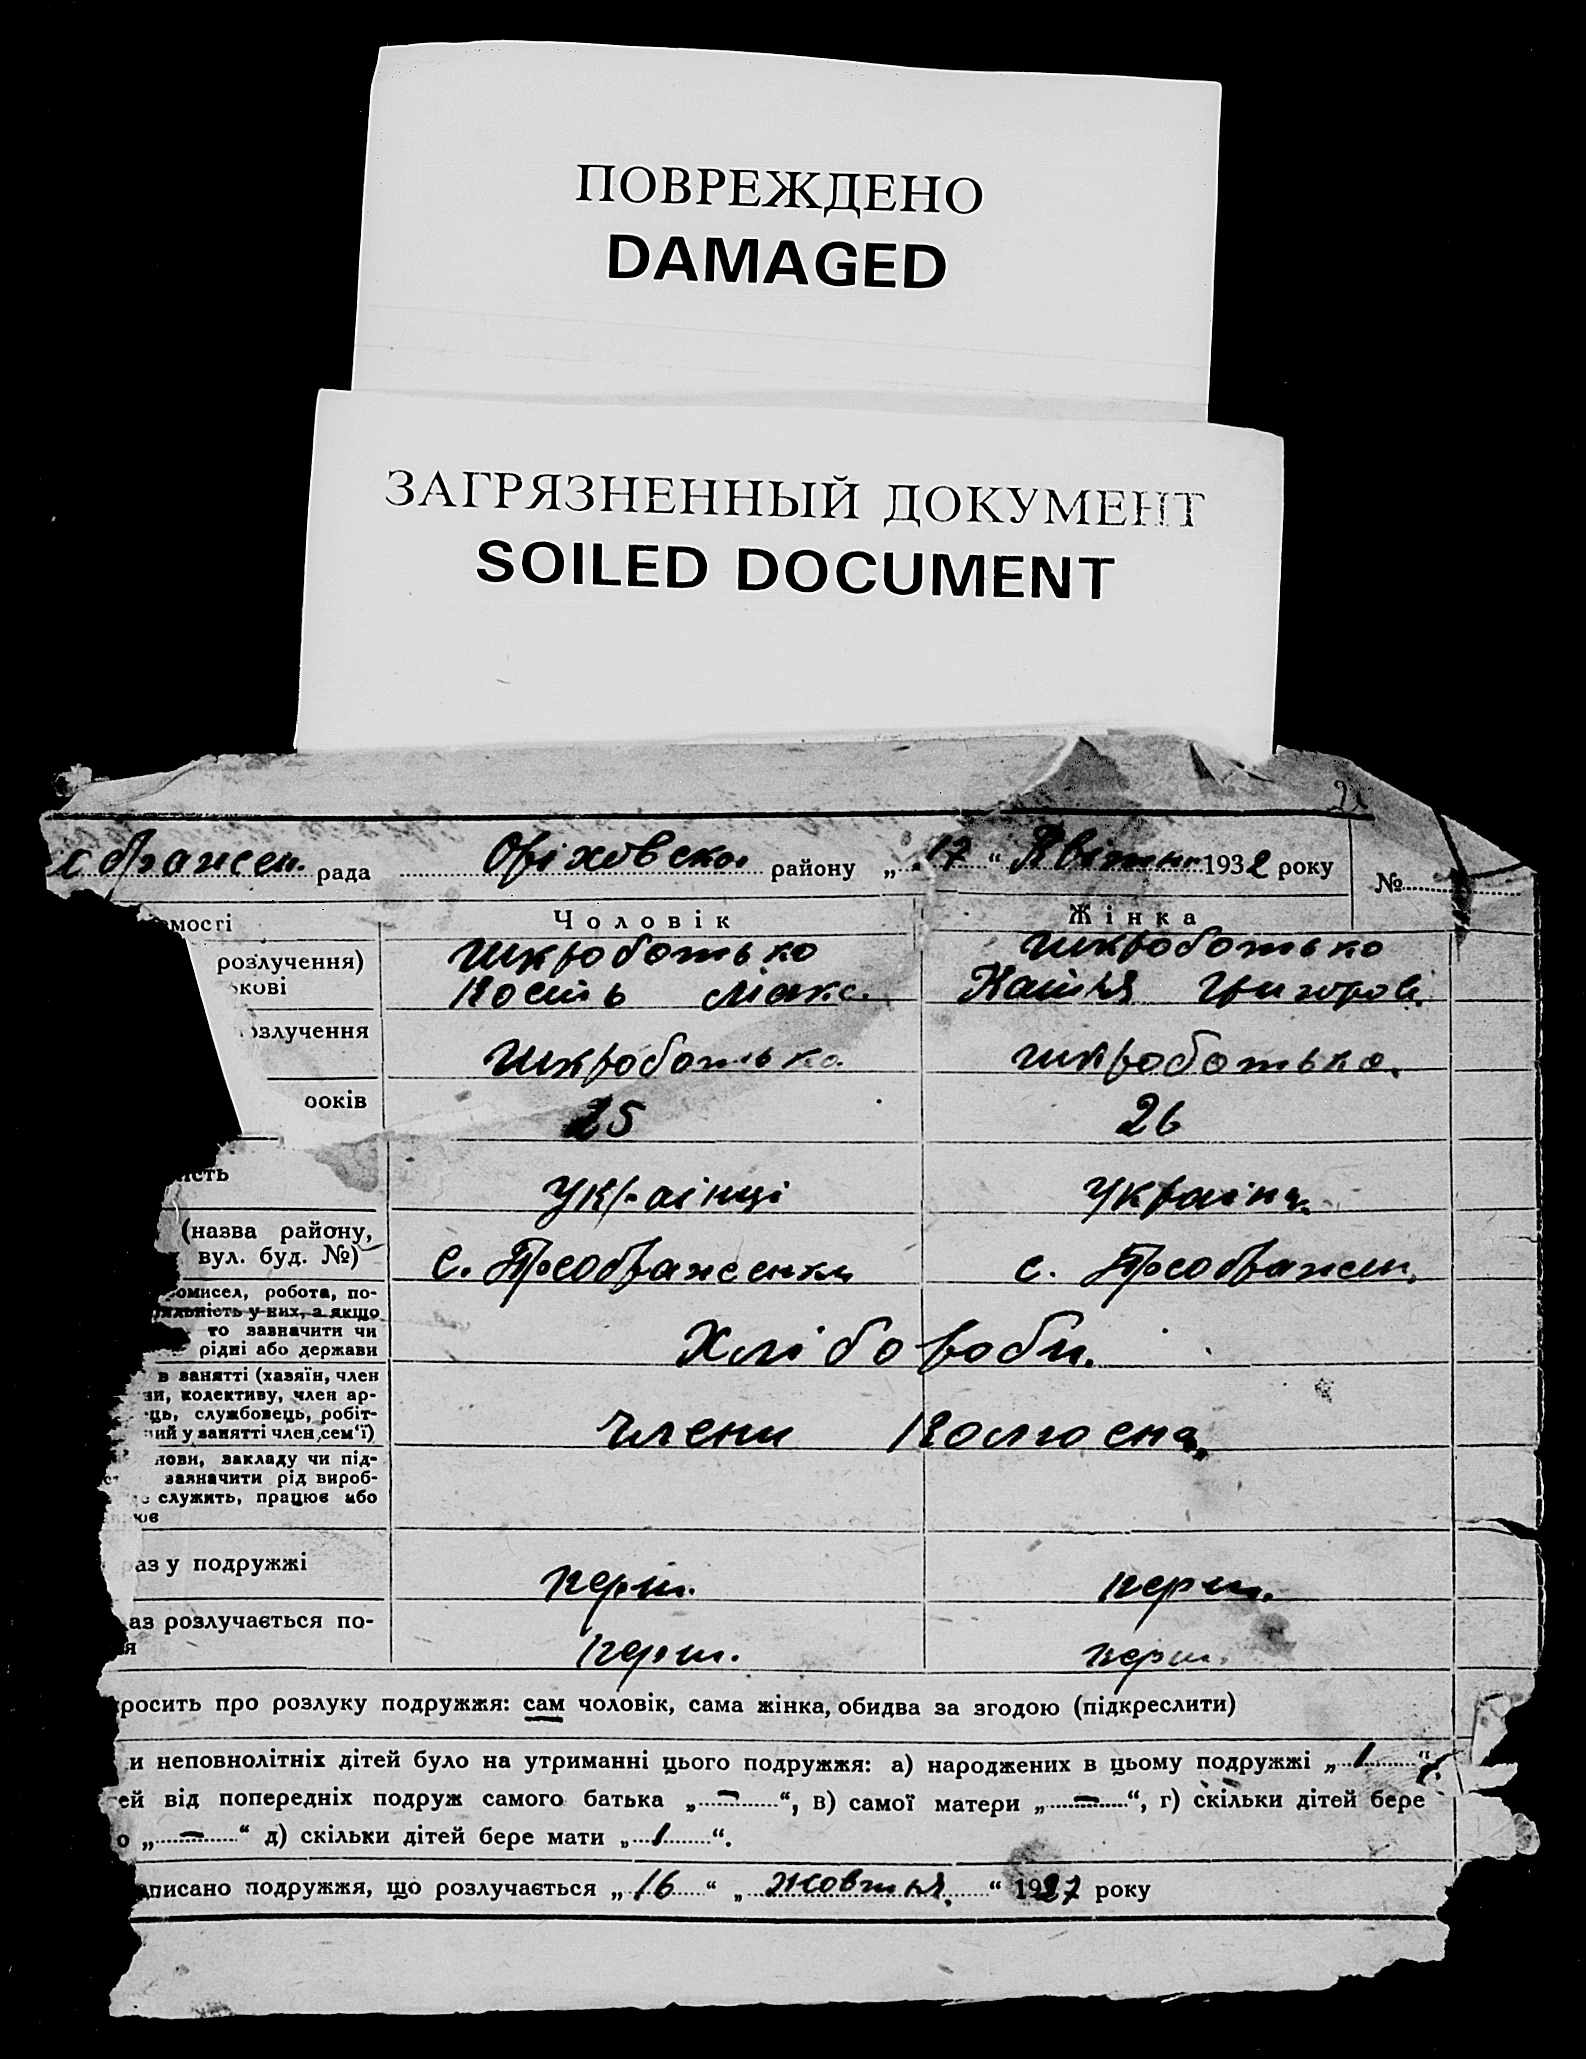 ПОВРЕЖДЕНО
DAMAGED
ЗАГРЯЗНЕННЫЙ ДОКУМЕНТ
SOILED DOCUMENT
рада Оріховско. району „ 17 “ Квітня 1932 року №
мості Чоловік Жінка
розлучення) Шкроботько Шкроботько
ькові Кость Макс. Катья Григоров.
озлучення Шкроботько Шкроботько.
років 25 26
ість Українці Україн.
(назва району,
вул. буд. №) с. Преображенки с. Преображен.
омисел, робота, по-
яльність у них, а якщо
то зазначити чи
рідні або держави Хлібороби.
в занятті (хазяїн, член
зи, колективу, член ар-
ць, службовець, робіт-
ний у занятті член сем'ї) Члени Колгосна.
нови, закладу чи під-
зазначити рід вироб-
служить, працює або
аз у подружжі перш. перш.
аз розлучається по-
я перш. перш.
росить про розлуку подружжя: сам чоловік, сама жінка, обидва за згодою (підкреслити)
и неповнолітніх дітей було на утриманні цього подружжя: а) народжених в цьому подружжі „ 1 “,
ей від попередніх подруж самого батька „ — “, в) самої матери „ — “, г) скільки дітей бере
о „ — “ д) скільки дітей бере мати „ 1 “.
писано подружжя, що розлучається „ 16 “ „ жовтня “ 1927 року